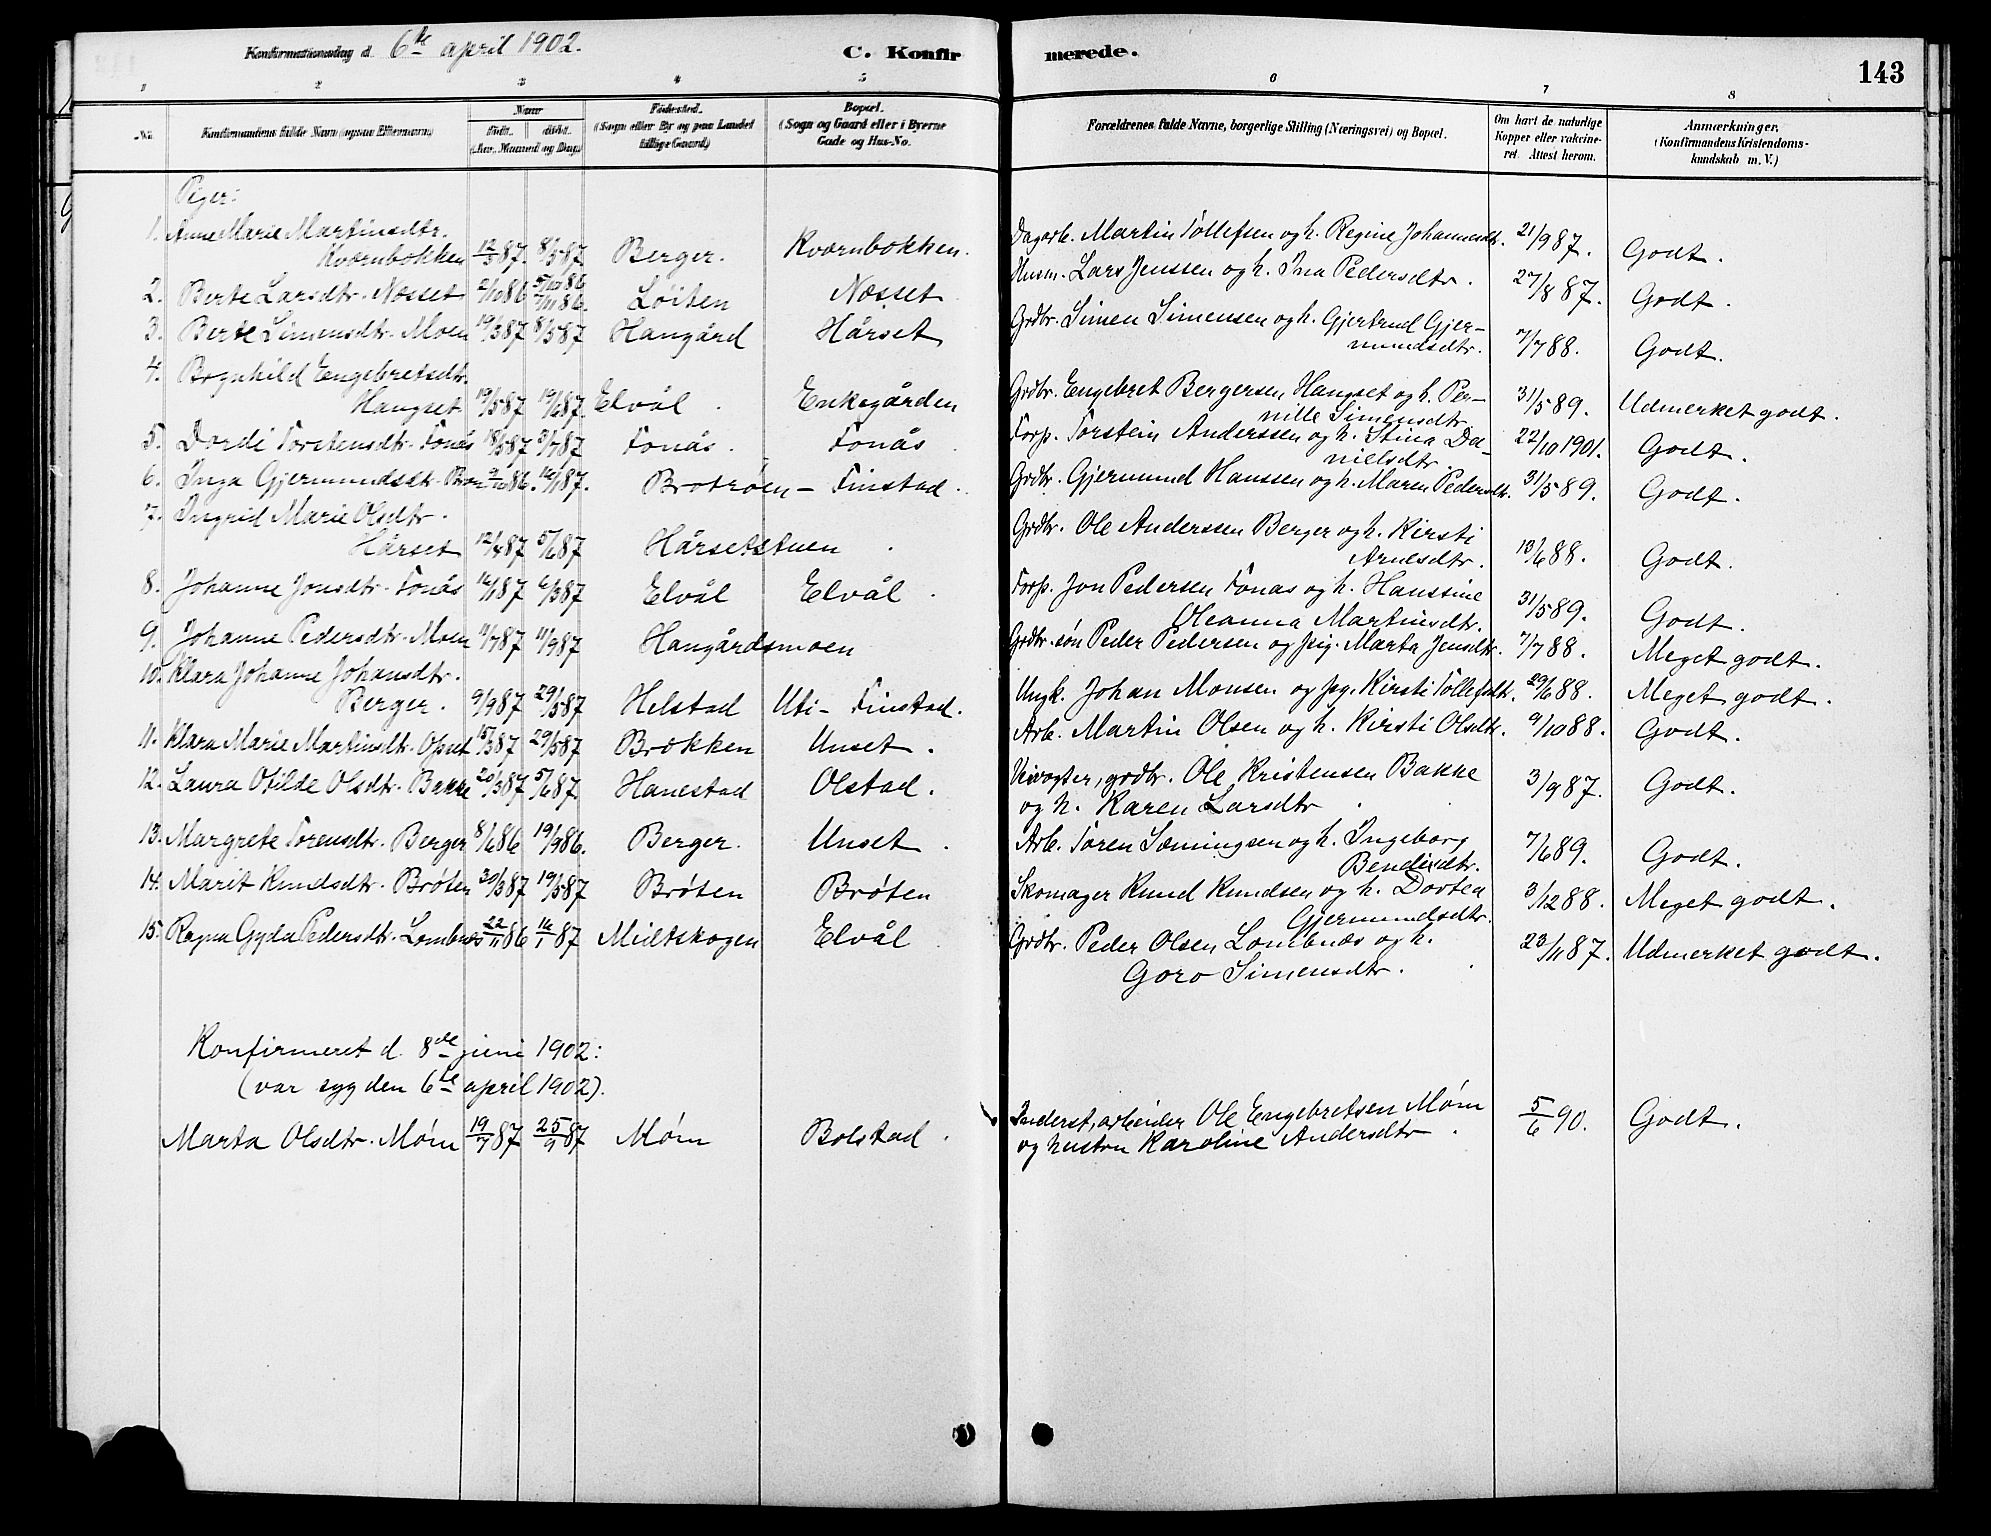 Konfirmationsdag d. 6te april 1902. C. Konfirmerede. 143
1 2 3 4 5 6 7 8
No. Konfirmandens fulde Navn (ogsaa Efternavn) Naar født. døbt. (Aar, Maaned og Dag) Fødested. (Sogn eller By og paa Landet tillige Gaard) Bopæl. (Sogn og Gaard eller i Byerne Gade og Hus-No. Forældrenes fulde Navne, borgerlige Stilling (Næringsvei) og Bopæl. Om havt de naturlige Kopper eller vakcineret. Attest herom. Anmærkninger. (Konfirmandens Kristendomskundskab m. V.)
Piger:
1. Anne Marie Martinsdtr. Dagarb. Martin Tollefsen og h. Regine Johannesdtr. 21/9 87. Godt.
Kværnbokken 12/3 87. 8/5 87 Berger. Kværnbokken.
2. Berte Larsdtr. Næsset 2/10 86 5/10 86 Løiten Næsset Husm. Lars Jenssen og h. Ina Pedersdtr. 27/8 87. Godt.
7/11 86.
3. Berte Simensdtr. Moen 19/3 87 8/5 87 Hangård Hårset Grdbr. Simen Simensen og h. Gjertrud Gjer-
mundsdtr. 7/7 88. Godt.
4. Bognhild Engebretsdtr.
Hangset. 19/5 87 19/6 87. Elvål. Enkegården Grdbr. Engebret Bergersen Hangset og h. Per- 31/5 89. Udmerket godt.
nille Simensdtr.
5. Dordi Torstensdtr. Fonås 18/5 87 3/7 87 Fonås. Fonås Forp. Torstein Anderssen og h. Stina Da- 22/10 1901. Godt.
nielsdtr.
6. Inga Gjermundsdtr. 9/10 86. 16/1 87. Brotrøen – Finstad. Grdbr. Gjermund Hanssen og h. Maren Pedersdtr. 31/5 89. Godt.
7. Ingrid Marie Olsdtr. Grdbr. Ole Anderssen Berger og h. Kirsti
Hårset 12/4 87 5/6 87 Hårsetstuen Arnesdtr. 13/6 88. Godt.
8. Johanne Jonsdtr. Fonås 16/1 87 6/3 87 Elvål Elvål. Forp. Jon Pedersen Fonas og h. Hanssine
Oleanna Martinsdtr. 31/5 89. Godt.
9. Johanne Pedersdtr. Moen 11/7 87 11/9 87 Hangårdsmoen Grdbr. søn Peder Pedersen og pig. Marta Jensdtr. 7/7 88. Meget godt.
10. Klara Johanne Johansdtr.
Berger. 9/4 87 29/5 87 Helstad Uti-Finstad. Ungk. Johan Monsen og pig. Kirsti Tollefsdtr. 29/6 88. Meget godt.
11. Klara Marie Martinsdtr. 15/3 87 29/5 87 Brækken Unset. Arb. Martin Olsen og h. Kirsti Olsdtr. 9/10 88. Godt.
12. Laura Otilde Olsdtr. Bakke 20/3 87 5/6 87. Hanestad Olstad. Veivogter, grdbr. Ole Kristensen Bakke 3/9 87. Godt.
og h. Karen Larsdtr.
13. Margrete Torensdtr. Berger 8/6 86 19/9 86. Berger. Unset. Arb. Toren Sæmingsen og h. Ingeborg 7/6 89. Godt.
Bendiksdtr.
14. Marit Knudsdtr. Brøten 30/3 87 19/5 87 Brøten Brøten Skomager Knud Knudsen og h. Dortea 3/12 88. Meget godt.
Gjermundsdtr.
15. Ragna Gyda Pedersdtr. Lombnæs 22/11 86 16/1 87 Midtskogen Elvål Grdbr. Peder Olsen Lombnæs og h. 23/11 87. Udmerket godt.
Goro Simensdtr.
Konfirmeret d. 8de juni 1902:
(var syg den 6te april 1902).
Marta Olsdtr. Møm 19/7 87 25/9 87 Møm Bolstad. Inderst, arbeider Ole Engebretsen Møm 5/6 90. Godt.
og hustru Karoline Andersdtr.